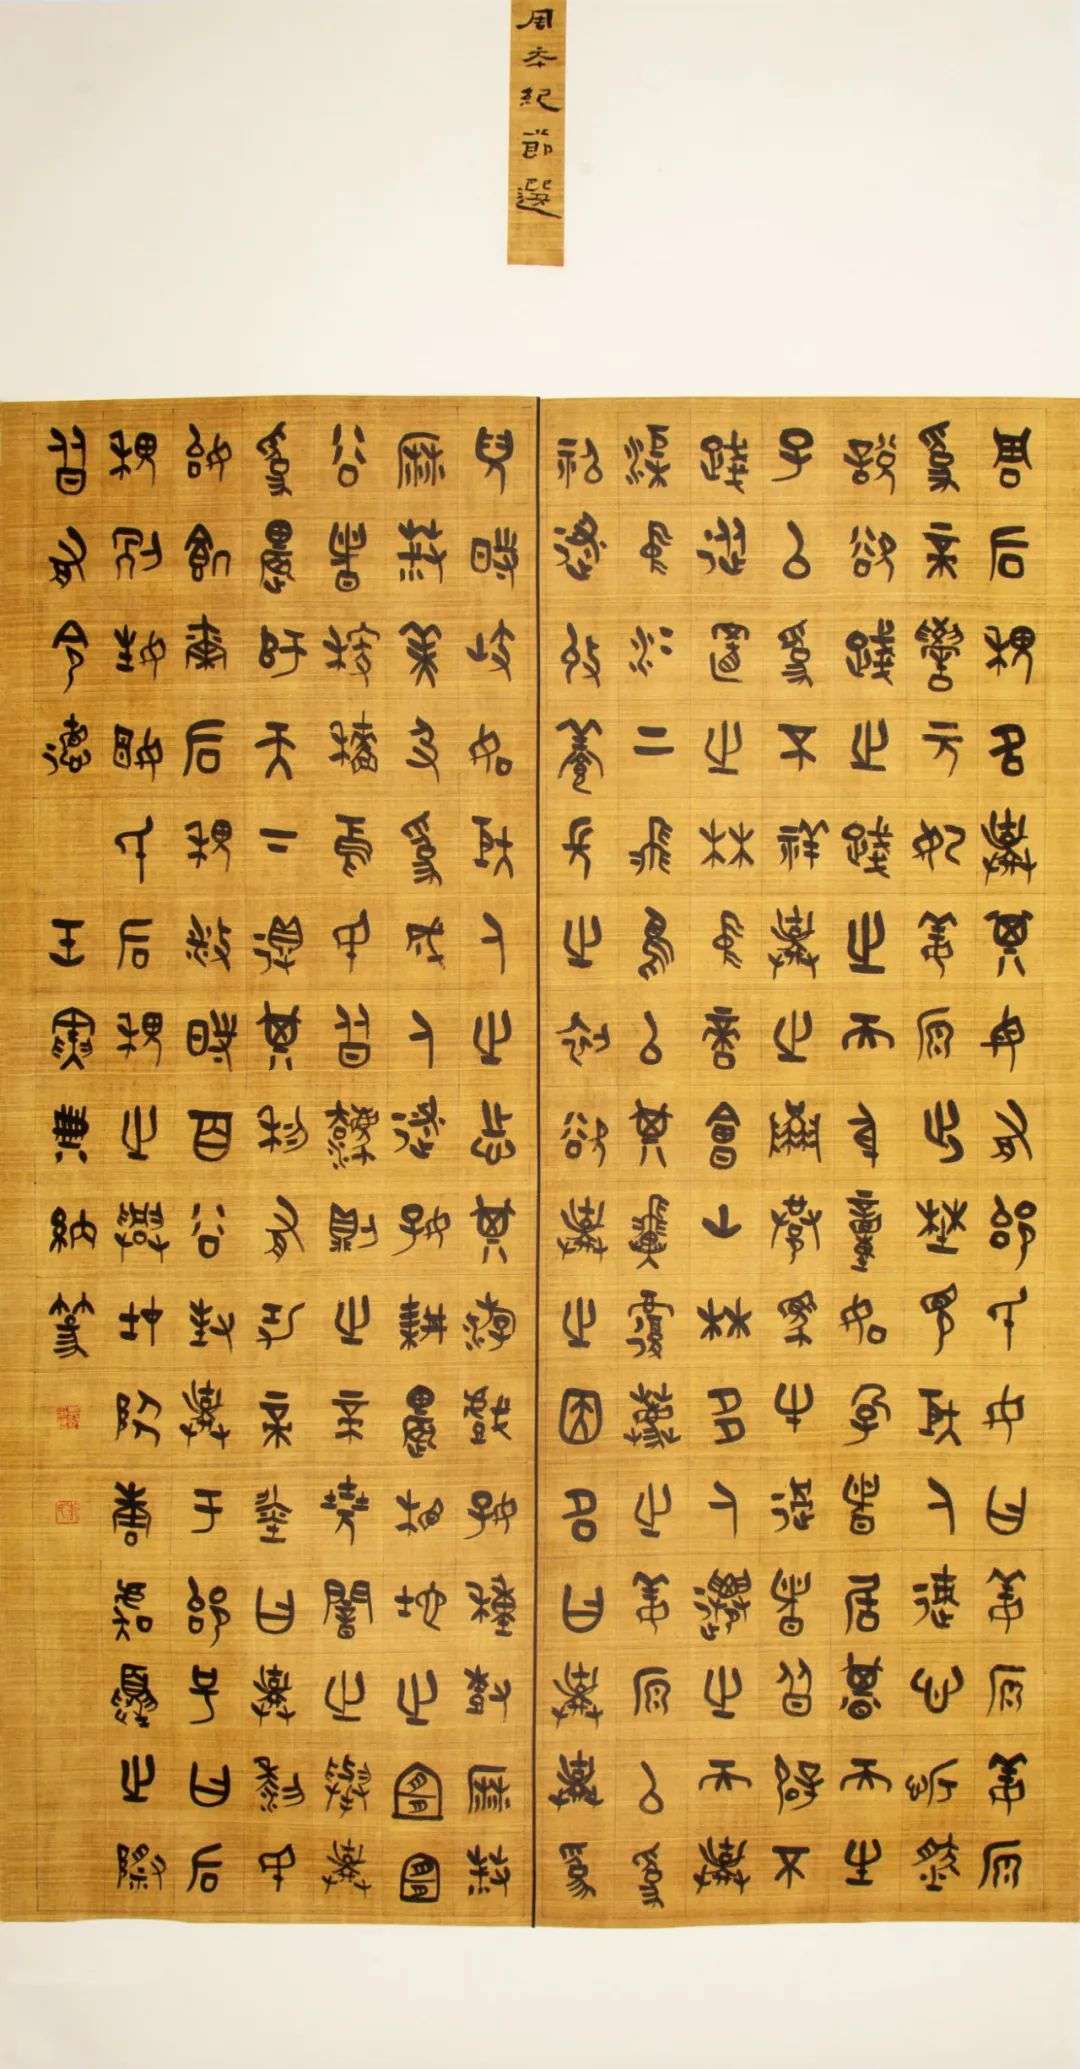 周本紀節選
周后稷名棄其母有邰氏女曰姜原姜原
為帝嚳元妃姜原出野見巨人跡心忻然
說欲踐之踐之而身動如孕者居期而生
子以為不祥棄之隘巷馬牛過者皆辟不
踐徙置之林中適會山林多人遷之而棄
渠中冰上飛鳥以其翼覆薦之姜原以為
神遂收養長之初欲棄之因名曰棄棄為
兒時屹如巨人之志其遊戲好種樹麻菽
麻菽美及為成人遂好耕農相地之宜宜
穀者稼穡焉民皆法則之帝堯聞之舉棄
為農師天下得其利有功帝舜曰棄黎民
始飢爾后稷播時百穀封棄于邰號曰后
稷別姓姬氏后稷之興在陶唐虞夏之際
皆有令德 王 納篆